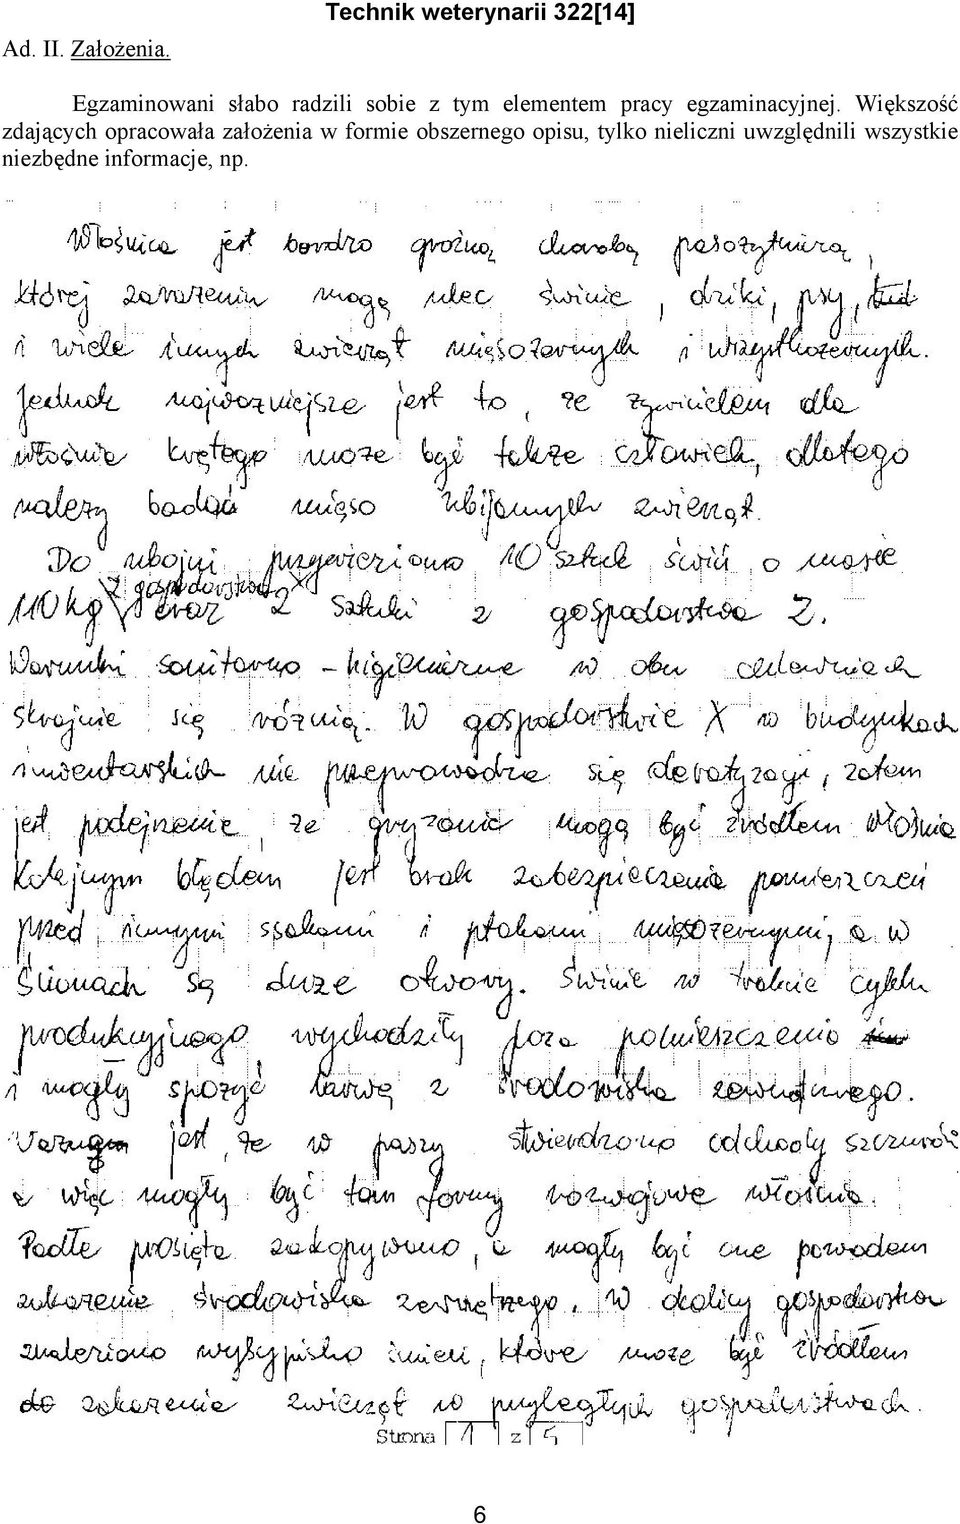 Technik weterynarii 322[14]
Ad. II. Założenia.
Egzaminowani słabo radzili sobie z tym elementem pracy egzaminacyjnej. Większość
zdających opracowała założenia w formie obszernego opisu, tylko nieliczni uwzględnili wszystkie
niezbędne informacje, np.
Włośnica jest bardzo groźną chorobą pasożytniczą,
której zarażeniu mogą ulec świnie, dziki, psy,
i wiele innych zwierząt mięsożernych i wszystkożernych.
Jednak najważniejsze jest to, że żywicielem dla
włośnia krętego może być także człowiek, dlatego
należy badać mięso ubijanych zwierząt.
Do ubojni przywieziono 10 sztuk świń o masie
110 kg z gospodarstwa X oraz 2 sztuki z gospodarstwa Z.
Warunki sanitarno-higieniczne w obu chlewniach
skrajnie się różnią. W gospodarstwie X w budynkach
inwentarskich nie przeprowadza się deratyzacji, zatem
jest podejrzenie, że gryzonie mogą być źródłem włośnia
Kolejnym błędem jest brak zabezpieczenia pomieszczeń
przed innymi ssakami i ptakami mięsożernymi, a w
ścianach są duże otwory. Świnie w trakcie cyklu
produkcyjnego wychodziły poza pomieszczenia
i mogły spożyć larwę z środowiska zewnętrznego.
Ważnym jest, że w paszy stwierdzono odchody szczurów
a więc mogły być tam formy rozwojowe włośnia.
Padłe prosięta zakopywano, a mogły być one powodem
zakażenie środowiska zewnętrznego. W okolicy gospodarstwa
znaleziono wysypisko śmieci, które może być źródłem
do zakażenie zwierząt w przyległych gospodarstwach.
Strona 1 z 5
6